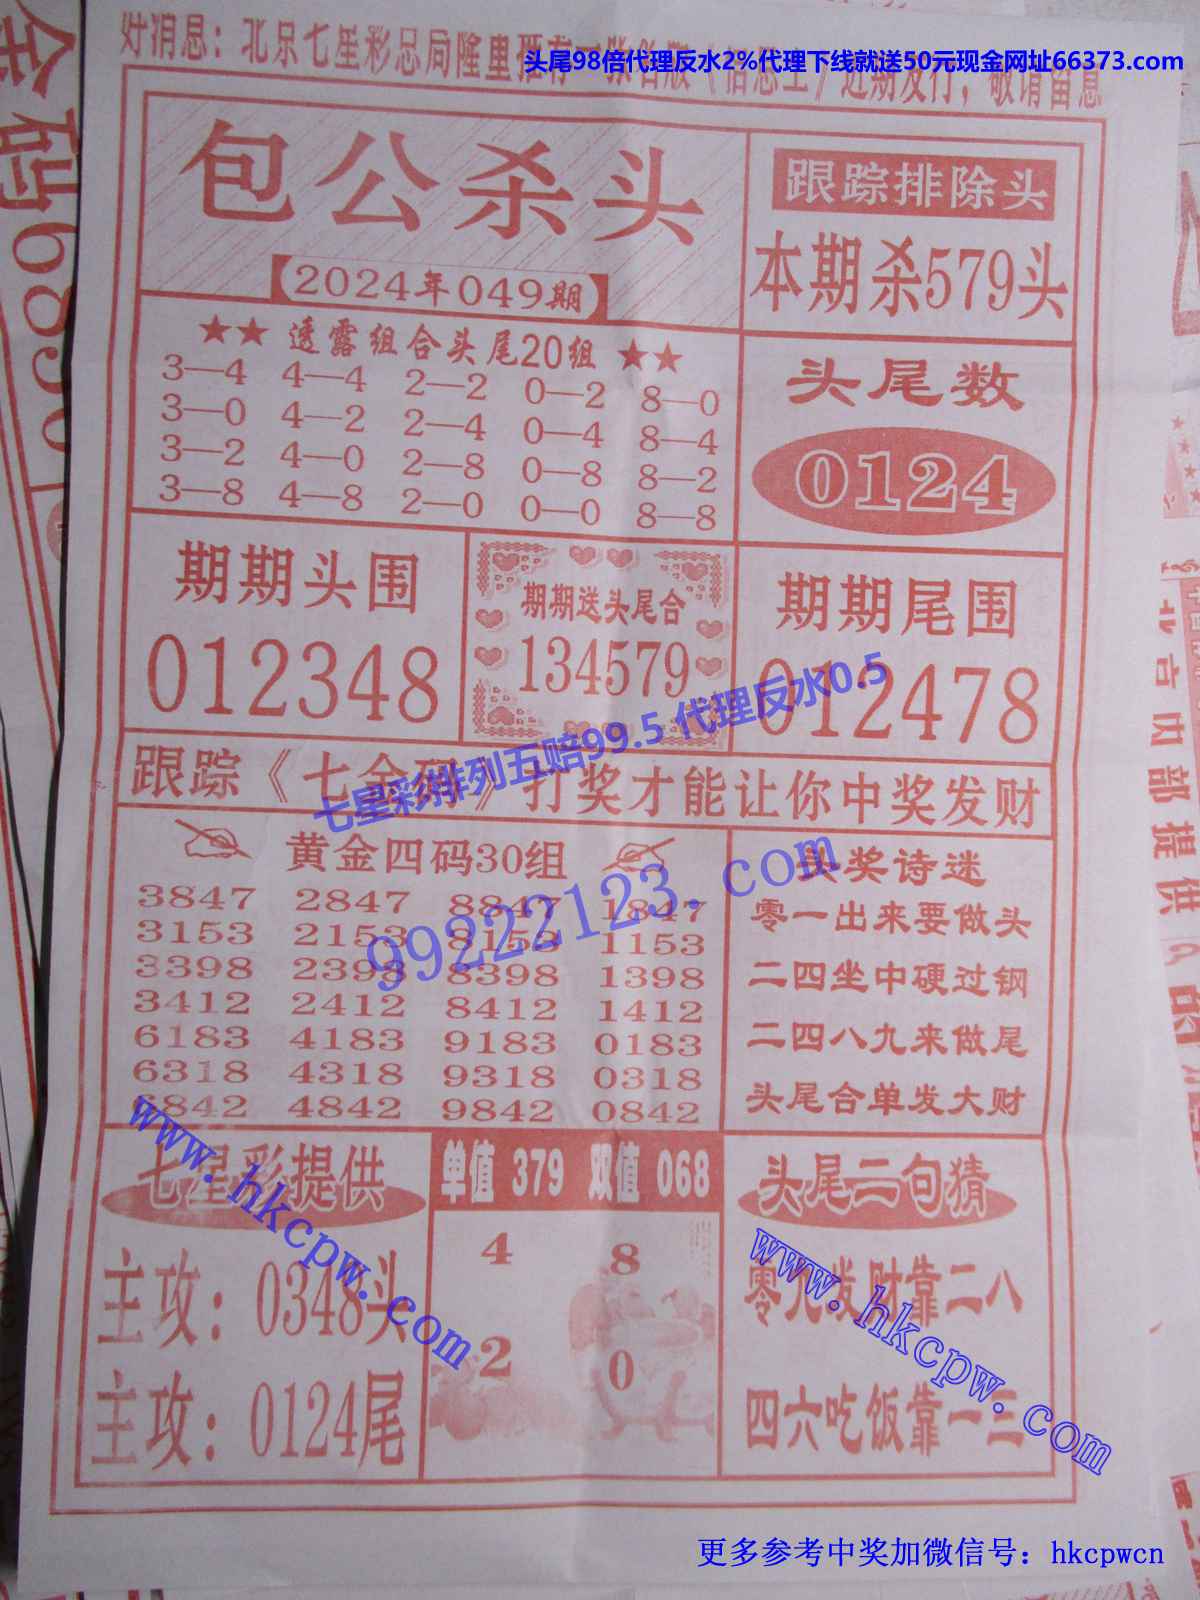 头尾98倍代理反水2%代理下线就送50元现金网址66373.com
好消息：北京七星彩总局隆重推荐一张名版
近期发行，敬请留意
包公杀头
【2024年049期】
跟踪排除头
本期杀579头
★★ 透露组合头尾20组 ★★
3—4 4—4 2—2 0—2 8—0
3—0 4—2 2—4 0—4 8—4
3—2 4—0 2—8 0—8 8—2
3—8 4—8 2—0 0—0 8—8
头尾数
0124
期期头围
012348
期期送头尾合
134579
期期尾围
012478
七星彩排列五赔99.5 代理反水0.5
跟踪《七金码》打奖才能让你中奖发财
黄金四码30组
3847 2847 8847 1847
3153 2153 8153 1153
3398 2398 8398 1398
3412 2412 8412 1412
6183 4183 9183 0183
6318 4318 9318 0318
6842 4842 9842 0842
99222123.com
头奖诗迷
零一出来要做头
二四坐中硬过钢
二四八九来做尾
头尾合单发大财
七星彩提供
主攻：0348头
主攻：0124尾
单值 379 双值 068
4 8
2 0
头尾二句猜
零九发财靠二八
四六吃饭靠一三
www.hkcpw.com
www.hkcpw.com
更多参考中奖加微信号：hkcpwcn